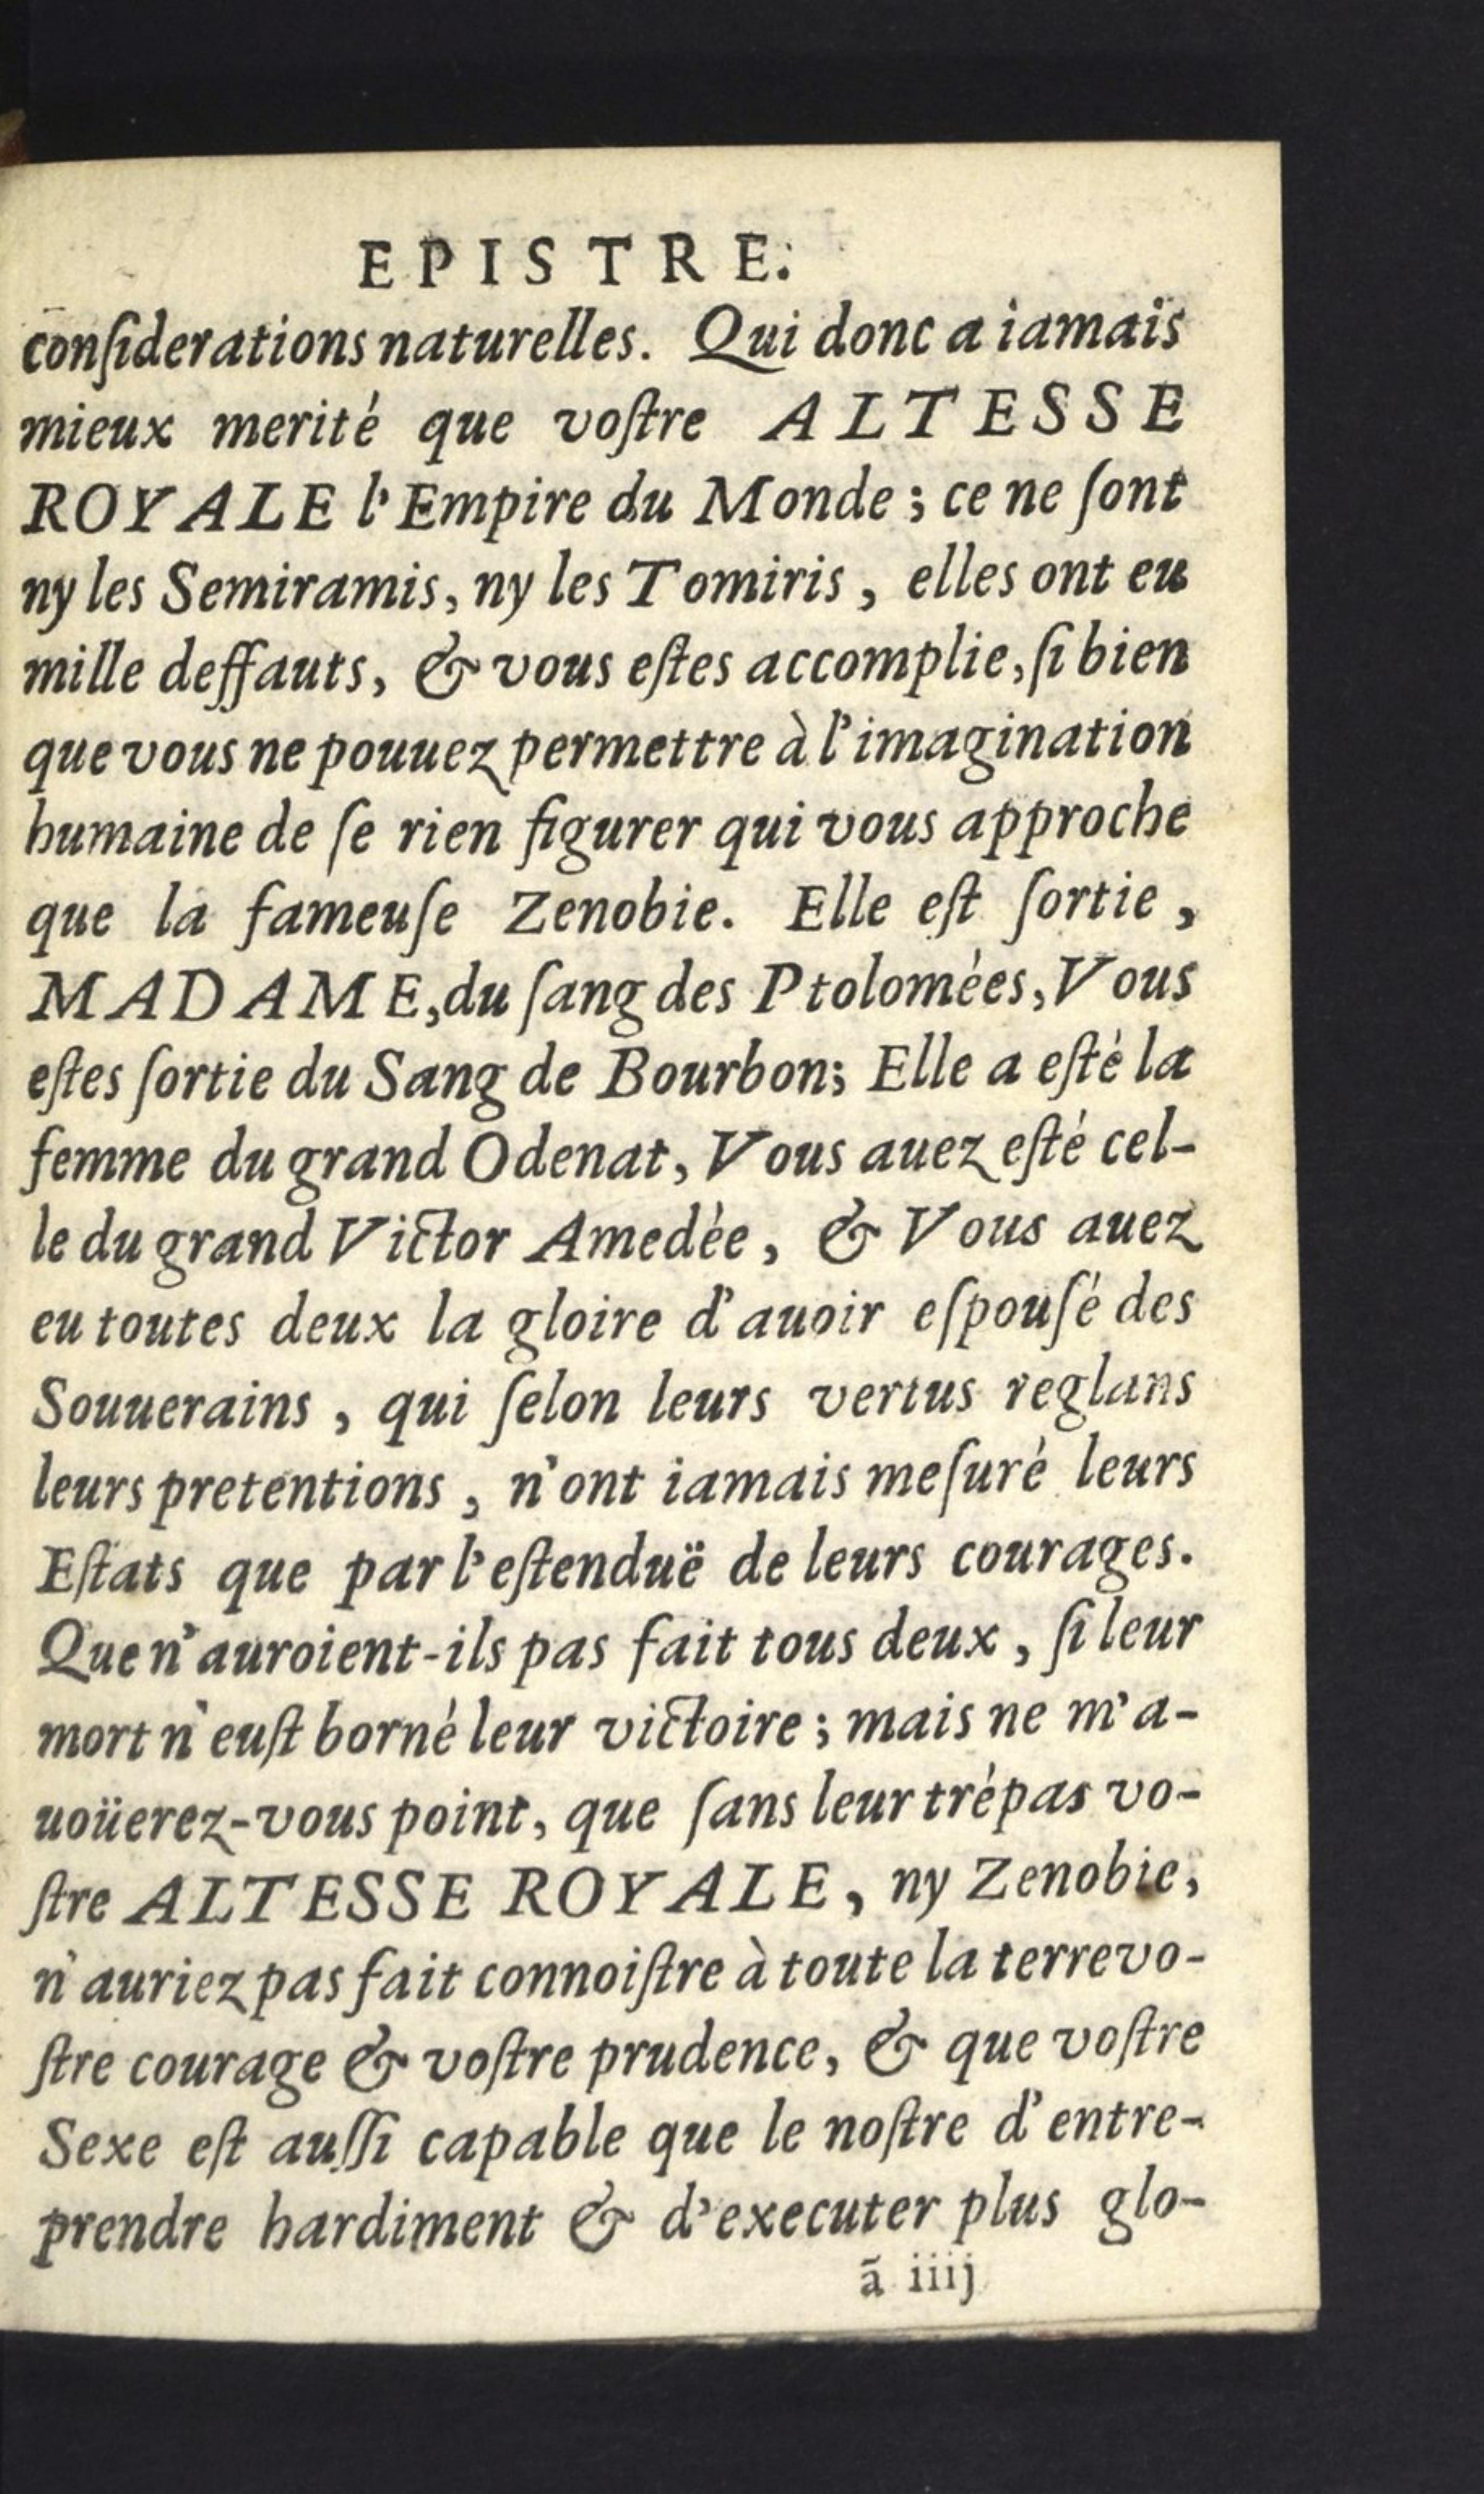 EPISTRE.
conſiderations naturelles. Qui donc a iamais
mieux merité que voſtre ALTESSE
ROYALE l'Empire du Monde ; ce ne ſont
ny les Semiramis, ny les Tomiris , elles ont eu
mille deffauts, & vous eſtes accomplie, ſi bien
que vous ne pouuez permettre à l'imagination
humaine de ſe rien figurer qui vous approche
que la fameuſe Zenobie. Elle eſt ſortie ,
MADAME, du ſang des Ptolomées, Vous
eſtes ſortie du Sang de Bourbon; Elle a eſté la
femme du grand Odenat, Vous auez eſté cel-
le du grand Victor Amedée , & Vous auez
eu toutes deux la gloire d'auoir eſpouſé des
Souuerains , qui ſelon leurs vertus reglans
leurs pretentions , n'ont iamais meſuré leurs
Eſtats que par l'eſtenduë de leurs courages.
Que n'auroient-ils pas fait tous deux , ſi leur
mort n'euſt borné leur victoire ; mais ne m'a-
uoüerez-vous point, que ſans leur trépas vo-
ſtre ALTESSE ROYALE , ny Zenobie,
n'auriez pas fait connoiſtre à toute la terre vo-
ſtre courage & voſtre prudence, & que voſtre
Sexe eſt auſſi capable que le noſtre d'entre-
prendre hardiment & d'executer plus glo-
ã iiij